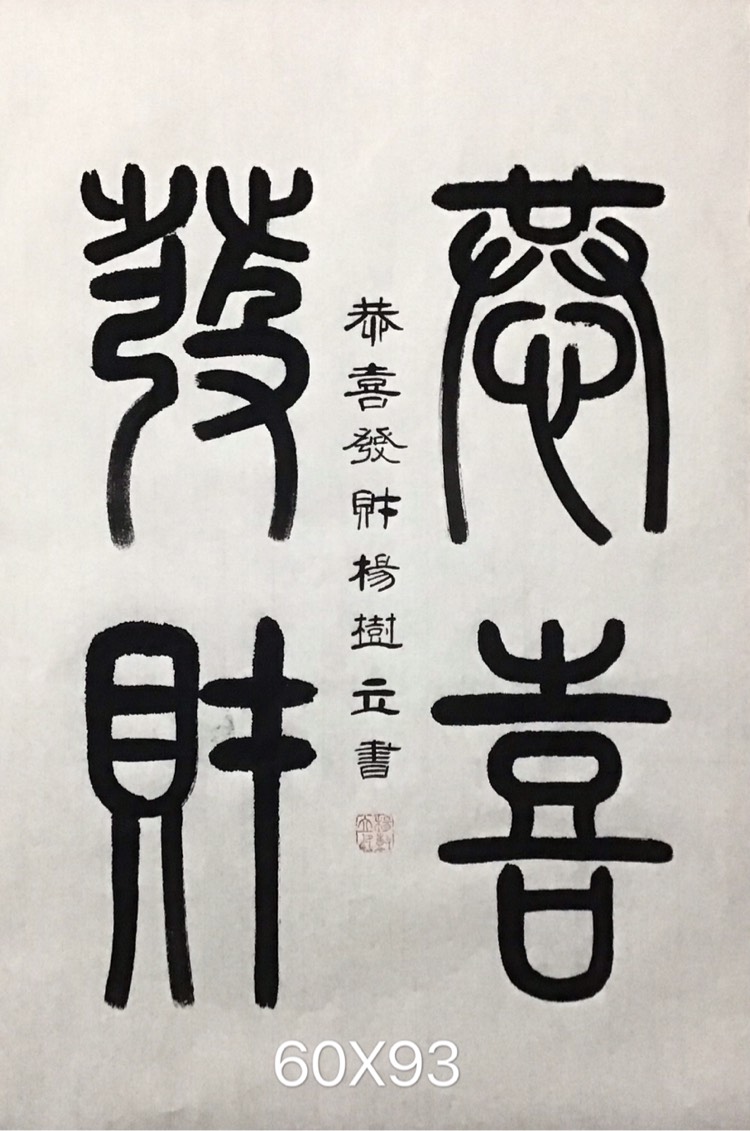 恭喜
恭喜發財楊樹立書
發財
60X93